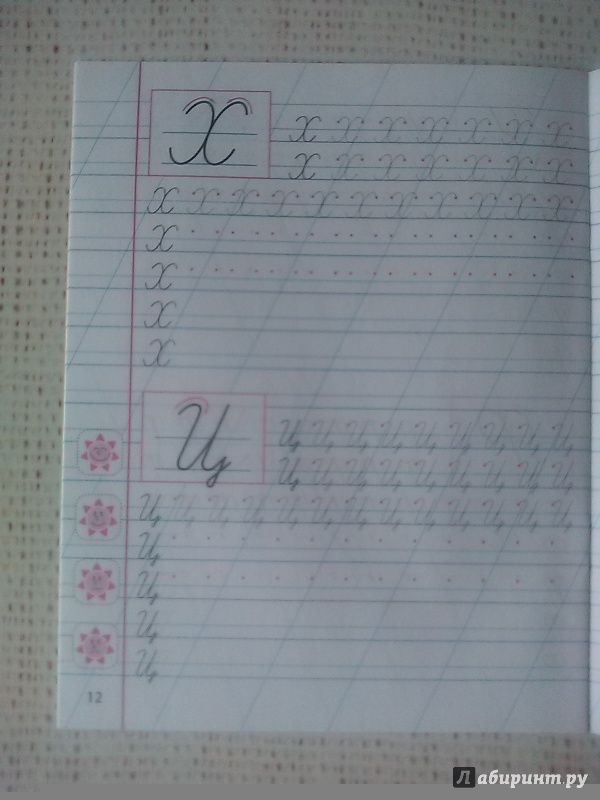 Х
Х Х Х Х Х Х Х
Х Х Х Х Х Х Х
Х Х Х Х Х Х Х Х Х Х Х
Х
Х
Х
Х
Ц
Ц Ц Ц Ц Ц Ц Ц Ц Ц
Ц Ц Ц Ц Ц Ц Ц Ц Ц
Ц Ц Ц Ц Ц Ц Ц Ц Ц Ц Ц Ц Ц
Ц
Ц
Ц
Ц
12
Лабиринт.ру